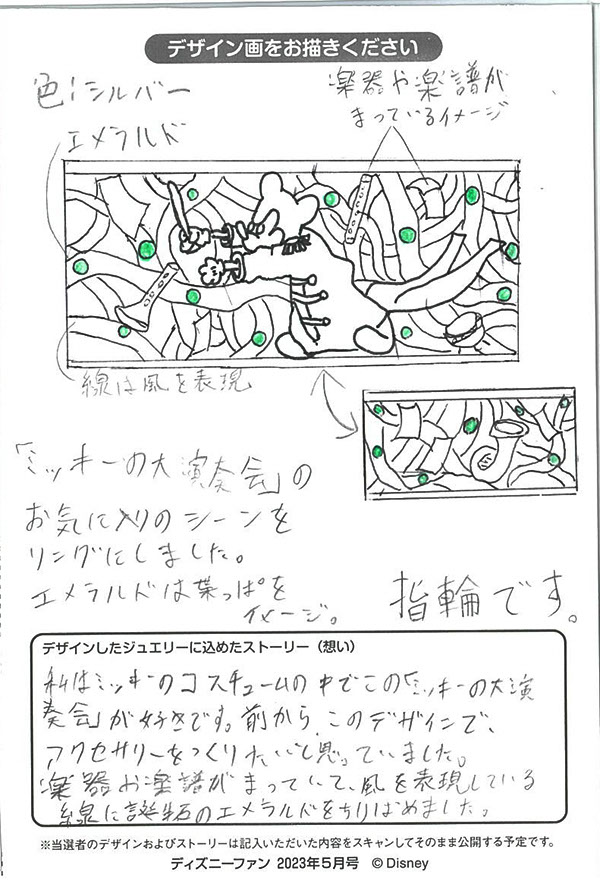 デザイン画をお描きください
色:シルバー
エメラルド
楽器や楽譜が
まっているイメージ
線は風を表現
「ミッキーの大演奏会」の
お気に入りのシーンを
リングにしました。
エメラルドは葉っぱを
イメージ。
指輪です。
デザインしたジュエリーに込めたストーリー（想い）
私はミッキーのコスチュームの中でこの「ミッキーの大演
奏会」が好きです。前から、このデザインで、
アクセサリーをつくりたいと思っていました。
楽器や楽譜がまっていて、風を表現している
線に誕生石のエメラルドをちりばめました。
※当選者のデザインおよびストーリーは記入いただいた内容をスキャンしてそのまま公開する予定です。
ディズニーファン 2023年5月号 ©Disney